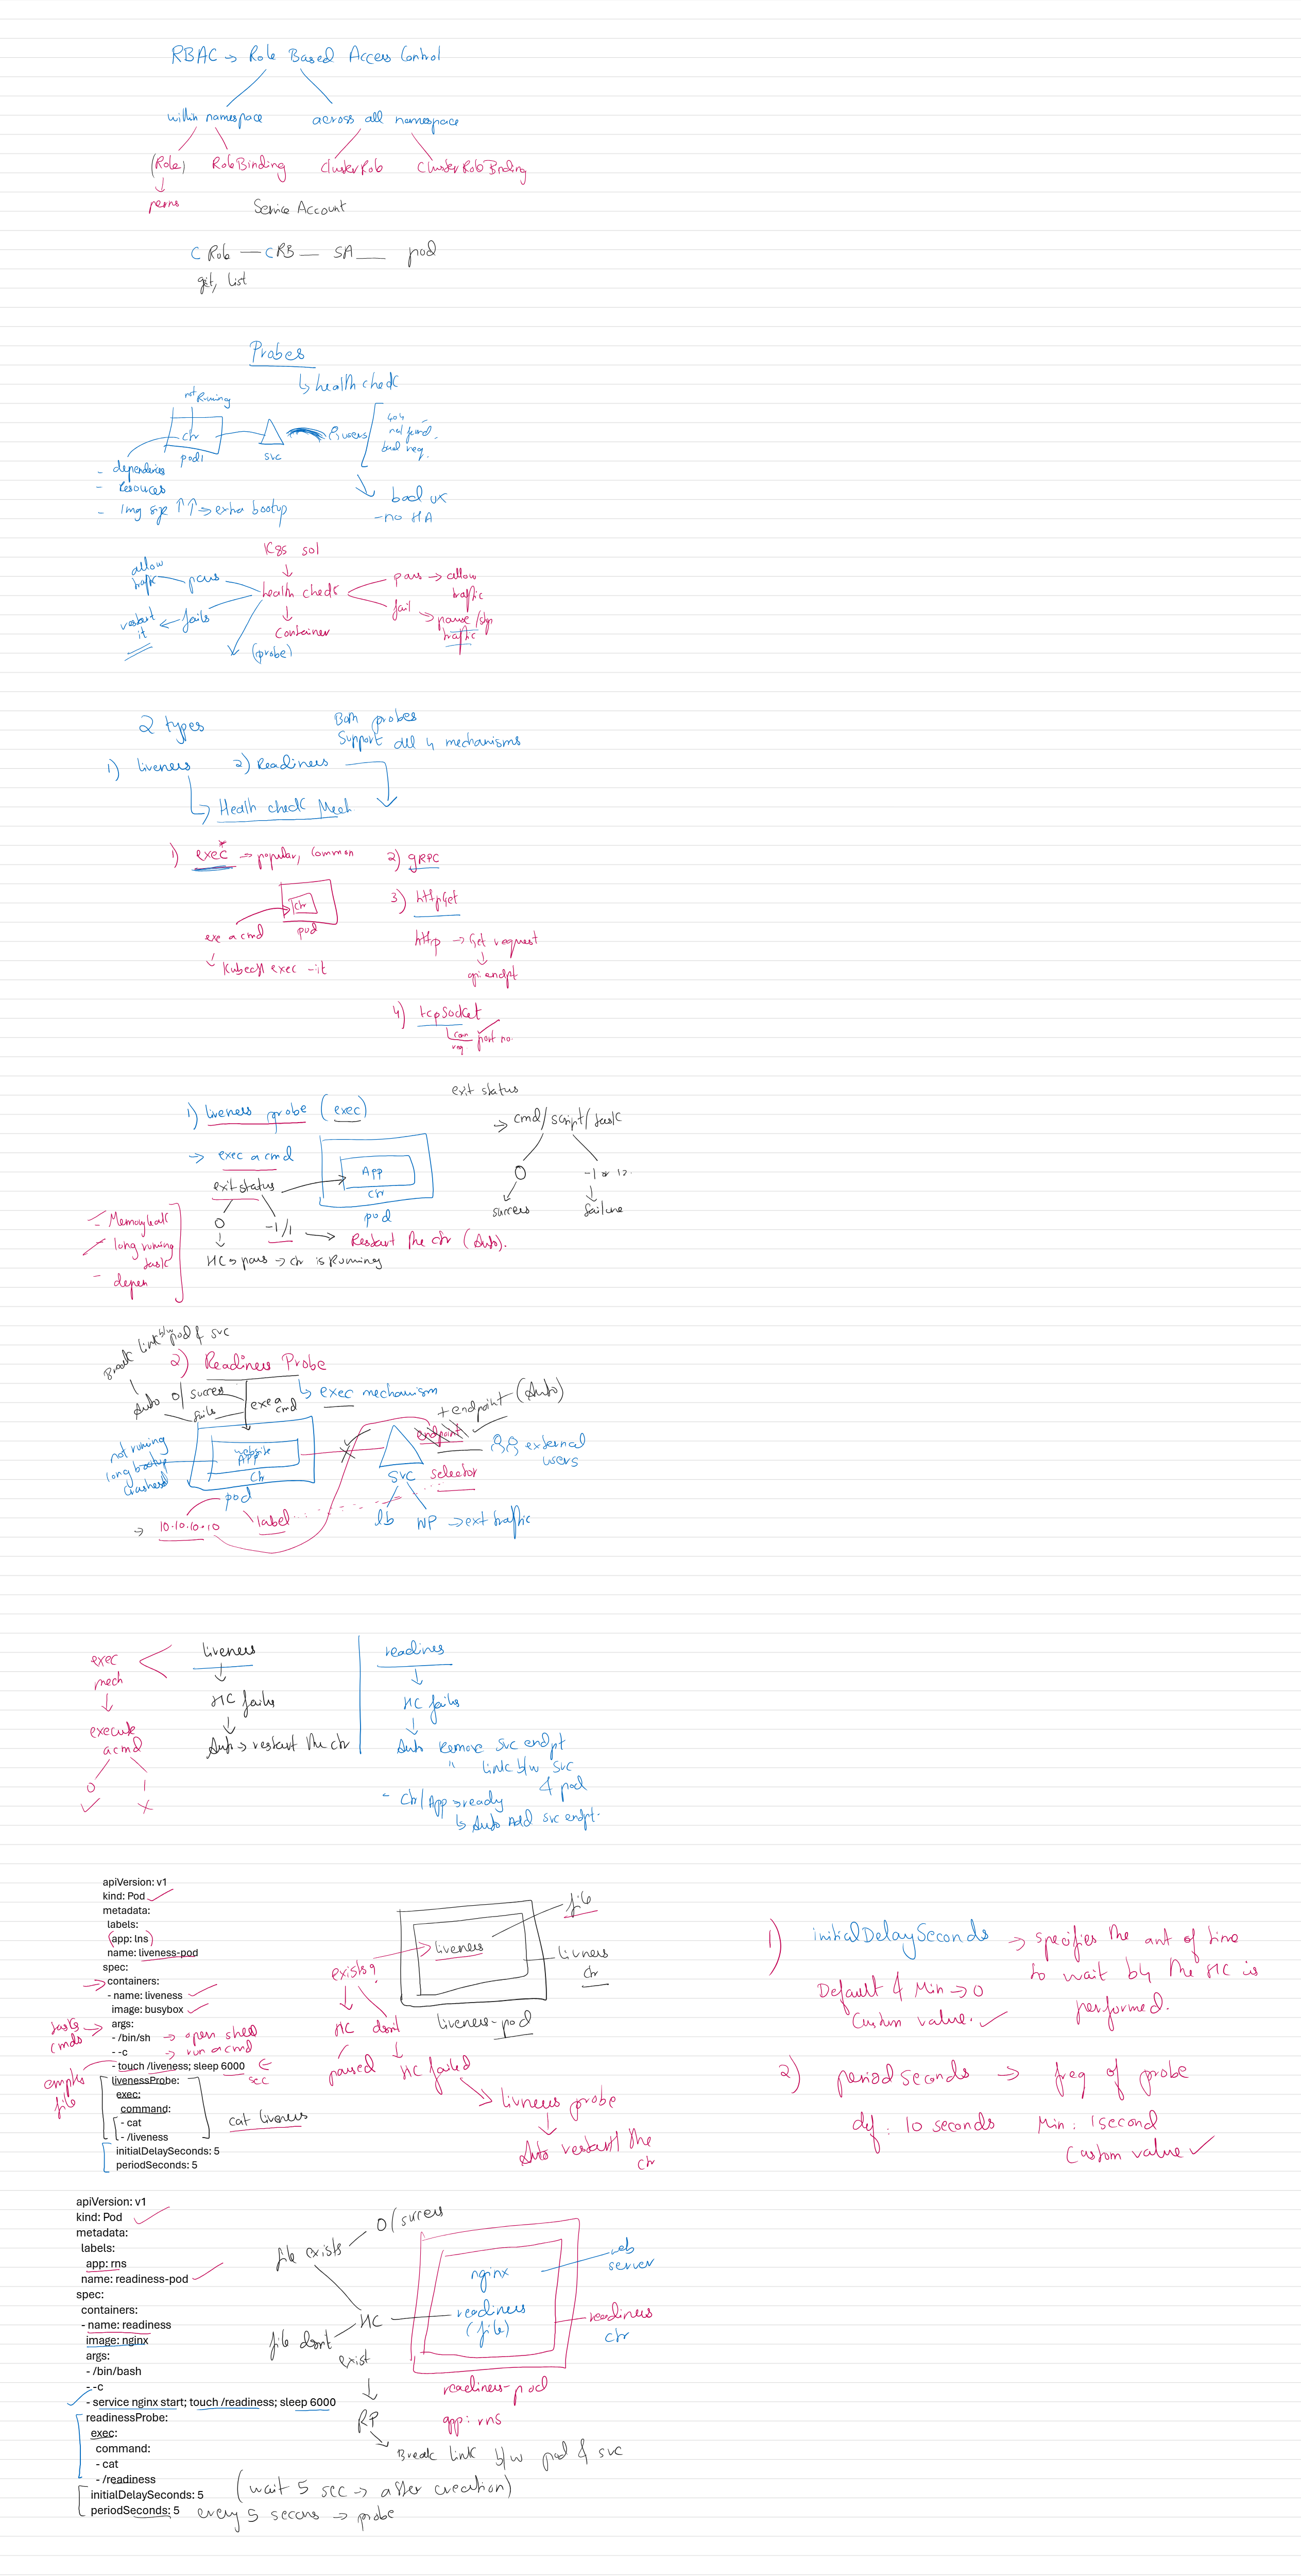 RBAC → Role Based Access Control
within namespace
across all namespace
(Role)
RoleBinding
ClusterRole
ClusterRoleBinding
↓
perms
Service Account
C Role — CRB — SA — pod
get, list
Probes
↳ health check
not Running
ctr
pod1
svc
users
404
not found.
bad req.
- dependencies
- resources
- Img size ↑↑ → extra bootup
↓ bad ux
- no HA
K8s sol
↓
health check
pass → allow traffic
fail → pause/stop traffic
pass
allow traffic
fails
restart it
↓
Container
(probe)
2 types
Both probes
Support all 4 mechanisms
1) liveness
2) Readiness
↳ Health check Mech
1) exec* → popular, common
ctr
pod
exe a cmd
↓ Kubectl exec -it
2) gRPC
3) httpGet
http → Get request
↓
api endpt
4) tcpSocket
port no.
1) liveness probe (exec)
→ exec a cmd
exit status
0
-1/1 → Restart the ctr (Auto).
↓
HC → pass → ctr is Running
App
ctr
pod
- Memory leak
- long running task
- depen
exit status
→ cmd/script/task
0
-1 or 1
success
failure
Break link b/w pod & svc
2) Readiness Probe
↳ exec mechanism
Auto
0/succes
fails
exe a cmd
+ endpoint (Auto)
endpoint
not running
long bootup
crashed
website
App
ctr
pod
svc
selector
external users
label
→ 10.10.10.10
lb
NP → ext traffic
exec mech
↓
execute a cmd
0
1
✓
✗
liveness
↓
HC fails
↓
Auto → restart the ctr
readiness
↓
HC fails
↓
Auto remove svc endpt
" link b/w svc & pod
- Ctr/App → ready
↳ Auto Add svc endpt.
apiVersion: v1
kind: Pod
metadata:
labels:
app: lns
name: liveness-pod
spec:
containers:
- name: liveness
image: busybox
args:
- /bin/sh → open shell
- -c → run a cmd
- touch /liveness; sleep 6000
sec
livenessProbe:
exec:
command:
- cat
- /liveness
initialDelaySeconds: 5
periodSeconds: 5
tasks
cmds
empty file
cat liveness
file
liveness
liveness ctr
liveness-pod
exists?
HC passed
dosnt
HC failed
liveness probe
↓
Auto restart the ctr
1) initialDelaySeconds → specifies the amt of time to wait b4 the HC is performed.
Default & Min → 0
Custom value. ✓
2) periodSeconds → freq of probe
def: 10 seconds
Min: 1second
Custom value ✓
apiVersion: v1
kind: Pod
metadata:
labels:
app: rns
name: readiness-pod
spec:
containers:
- name: readiness
image: nginx
args:
- /bin/bash
- -c
- service nginx start; touch /readiness; sleep 6000
readinessProbe:
exec:
command:
- cat
- /readiness
initialDelaySeconds: 5
(wait 5 sec → after creation)
periodSeconds: 5
every 5 secons → probe
file exists
0/success
HC
file dosnt exist
↓
RP
Break link b/w pod & svc
nginx
readiness
(file)
web server
readiness ctr
readiness-pod
app: rns